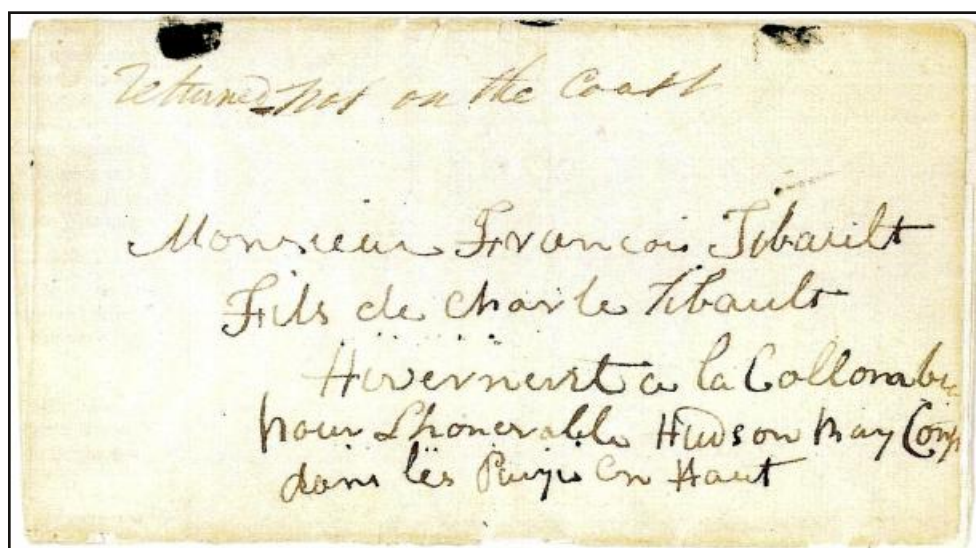 returned not on the Coast
Monsieur Francois Tibault
Fils de charle tibault
a la Collombie
pour Lhonerable Hudson Bay Comp
dans les Paÿis En Haut